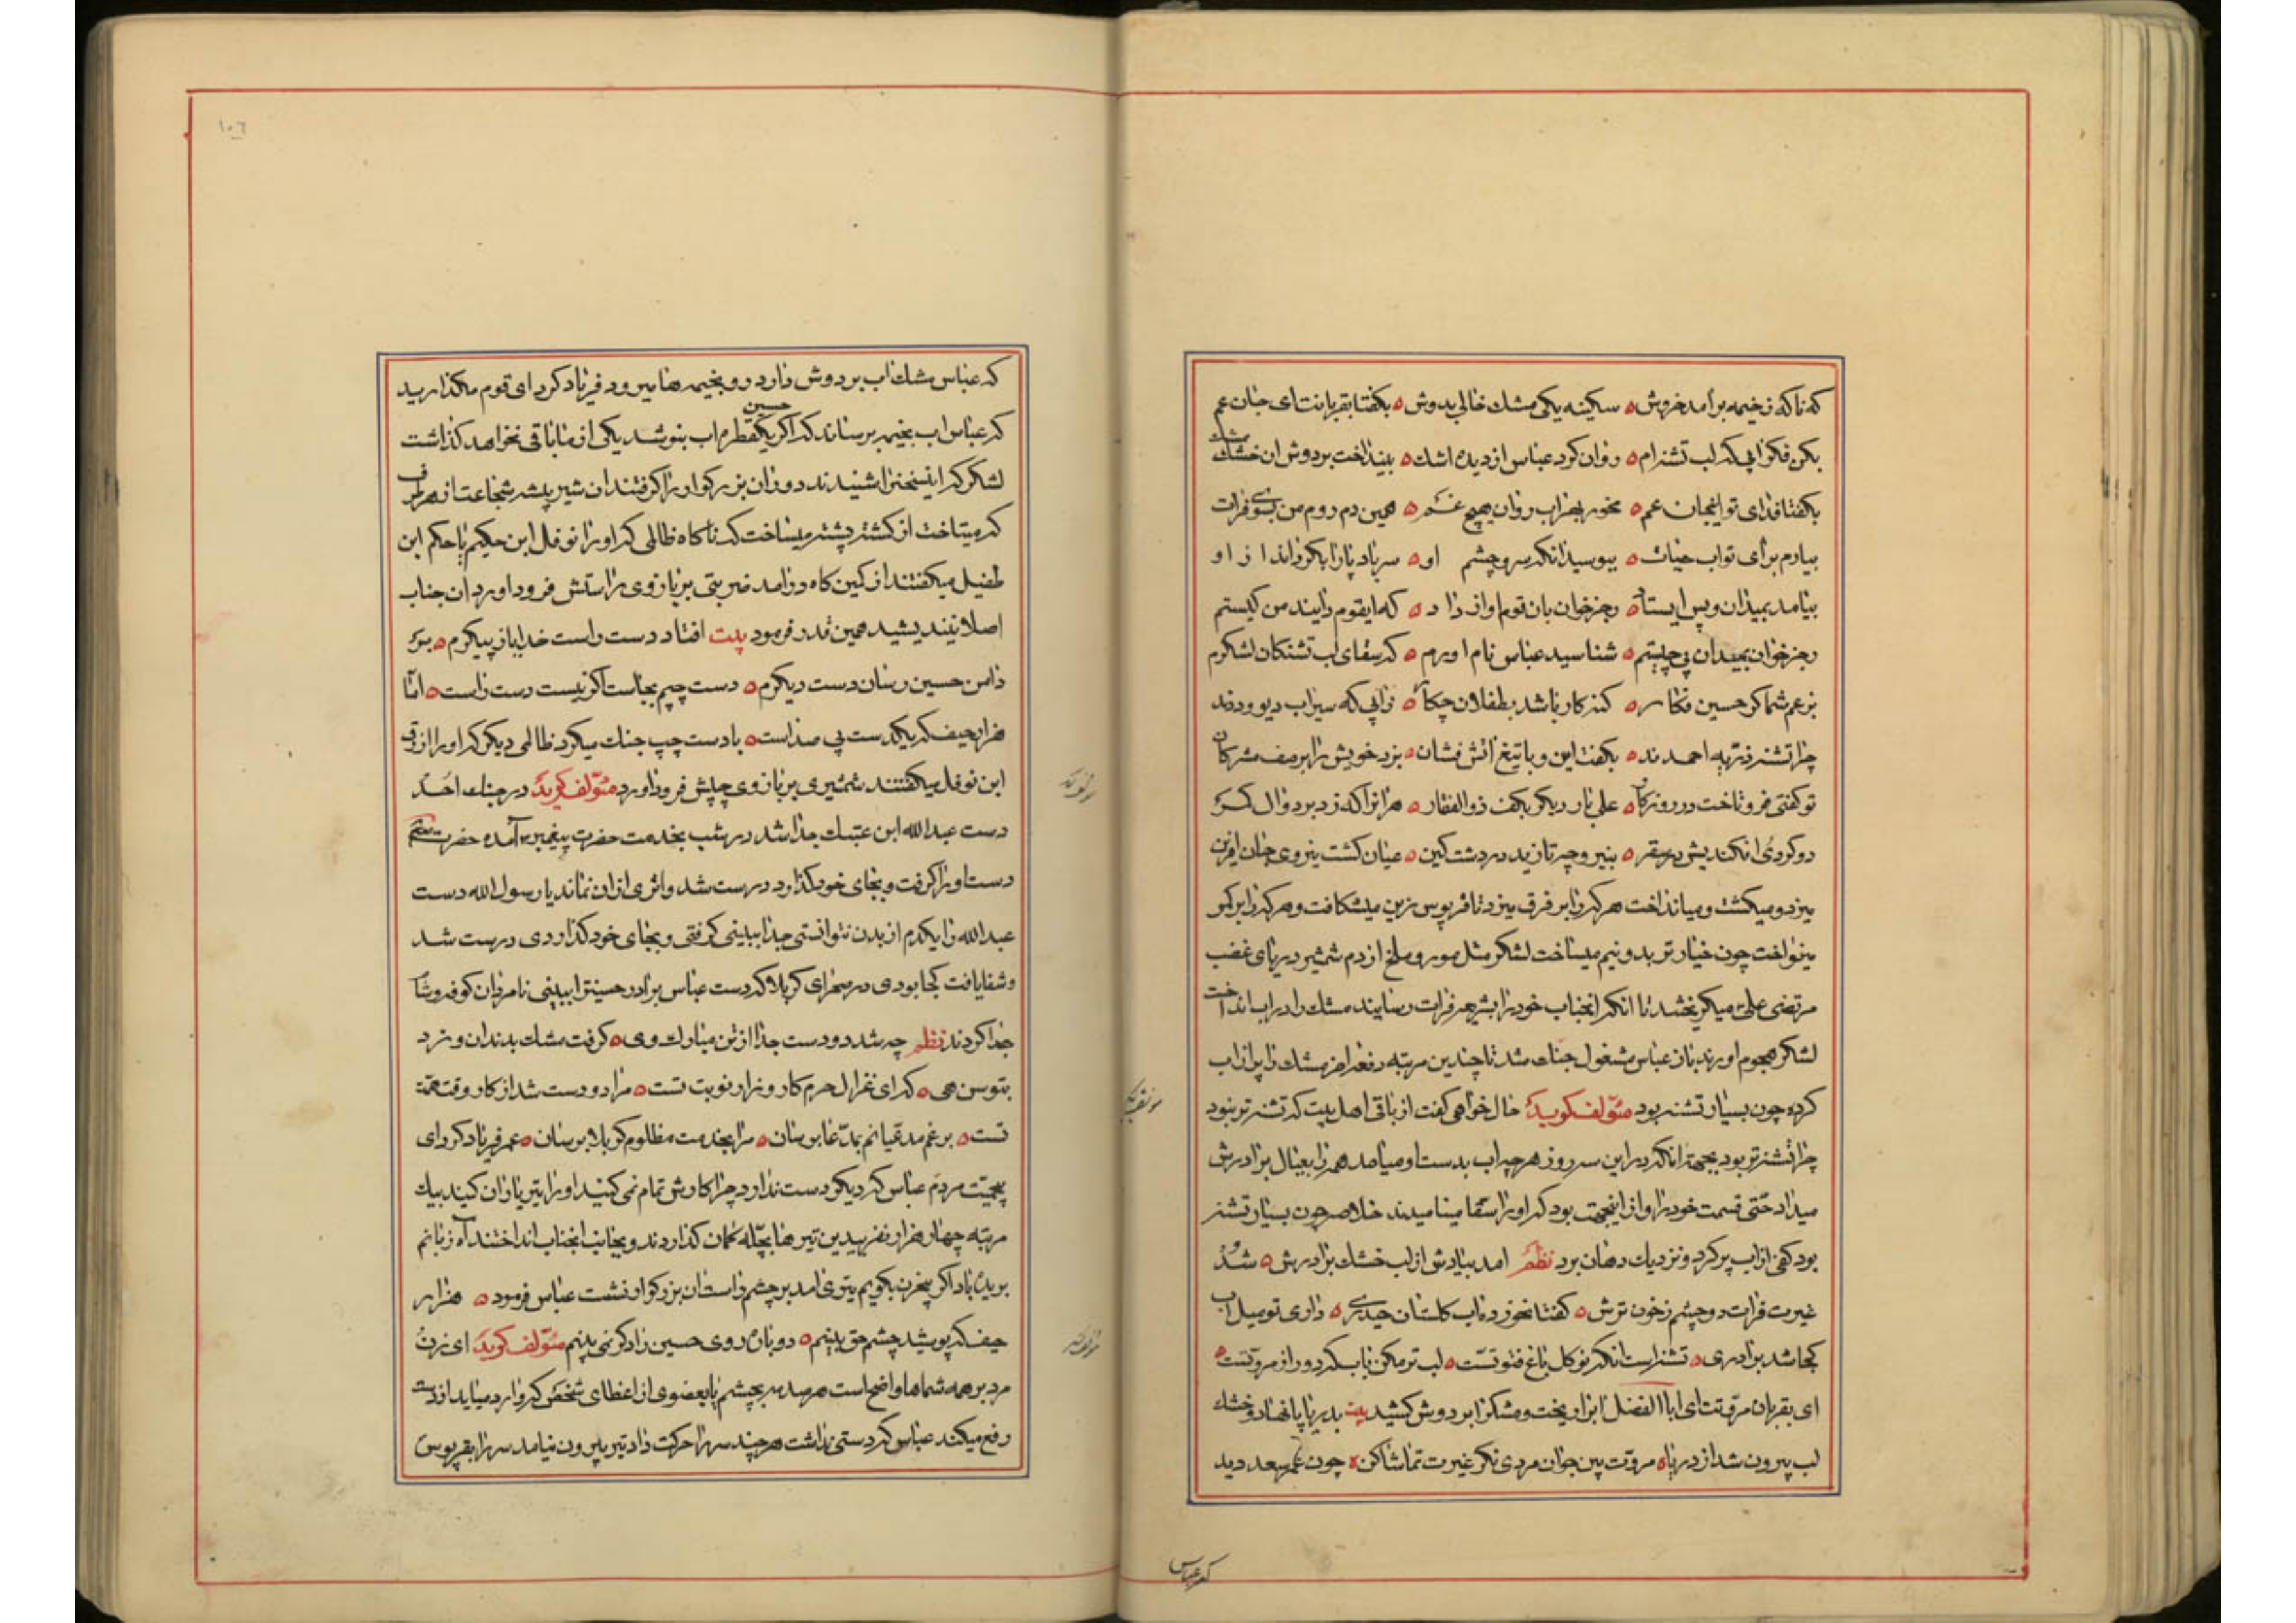 که ناکه زخیمه برآمد خروش ه سکینه یکی مشك خالی بدوش ه بکفتا بقربانت ای جان عم
بکن فکر ابی که لب تشنه ام ه روان کرد عباس از دیده اشك ه بینداخت بر دوش ان خشك مشك
بکفتا فدای تو ایجان عم ه مخور بهر اب روان هیچ غم ه همین دم روم من بسوی فرات
بیارم برای تو اب حیات ه ببوسید انکه سر و چشم او ه سر باد پا را بکرداند از او
بیامد بمیدان و پس ایستاد ه رجز خوان بان قوم اواز داد ه که ایقوم دانید من کیستم
رجز خوان بمیدان پی چیستم ه شناسید عباس نام اورم ه که سقای لب تشنکان لشکرم
بزعم شما کر حسین فکار ه کنه کار باشد بطفلان چکار ه زابی که سیراب دیو و ددند
چرا تشنه ذریه احمدند ه بکفت این و با تیغ اتش فشان ه بزد خویش را بر صف مشرکان
تو کفتی فرو تاخت در روزکار ه علی بار دیکر بکف ذوالفقار ه هرانرا که زد بر دوال کمر
دو کرد و انکندیش در سقر ه بنیر و چه تازید در دشت کین ه عیان کشت نیروی جان افرین
میزد و میکشت و میانداخت هر که را بر فرق میزد تا قرپوس زین میشکافت و هر که را بر کمر
مینواخت چون خیار تر بدو نیم میساخت لشکر مثل مور و ملخ از دم شمشیر دریای غضب
مرتضی علی میکریختند تا انکه انجناب خود را بشریعه فرات رسانیده مشك را در اب انداخت
لشکر هجوم اوردند باز عباس مشغول جنك شد تا چندین مرتبه دفعه اخر مشك را پر از اب
کرده چون بسیار تشنه بود مؤلف کوید حال خواهی کفت از باقی اهل بیت که تشنه تر نبود
چرا تشنه تر بود بجهة انکه در این سه روز هر چه اب بدست او میامد همه را بعیال برادرش
میداد حتی قسمت خود را و از اینجهت بود که او را سقا مینامیدند خلاصه چون بسیار تشنه
بود کفی از اب پر کرد و نزدیك دهان برد نظم امد بیادش از لب خشك برادرش ه شد
غیرت فرات دو چشم ز خون ترش ه کفتا نخورده اب کلستان حیدری ه داری تو میل اب
کجا شد برادری ه تشنه است انکه نو کل باغ فتوتست ه لب تر مکن باب که دور از مروتست ه
ای بقربان مروتت ای ابا الفضل اب را ریخت و مشکرا بر دوش کشید بیت بدریا پا نهاد و خشك
لب بیرون شد از دریا ه مروت بین جوان مردی نکر غیرت تماشا کن ه چون عمر سعد دید
که عباس
١٠٦
که عباس مشك اب بر دوش دارد رو بخیمه ها میرود فریاد کرد ای قوم مکذارید
که عباس اب بخیمه برساند که اکر یکقطره اب حسین بنوشد یکی از ما باقی نخواهد کذاشت
لشکر که اینسخنرا شنیدند دور ان بزرکوار را کرفتند ان شیر بیشه شجاعت از هر طرف
که میتاخت از کشته پشته میساخت که ناکاه ظالمی که او را نوفل ابن حکیم یا حکم ابن
طفیل میکفتند از کمین کاه درامد ضربتی بر بازوی راستش فرود اورد ان جناب
اصلا نیندیشید همین قدر فرمود بیت افتاد دست راست خدایا از پیکرم ه بر
دامن حسین رسان دست دیکرم ه دست چپم بجاست اکر نیست دست راست ه اما
هزار حیف که یکدست بی صداست ه با دست چپ جنك میکرد ظالمی دیکر که او را ازرق
ابن نوفل میکفتند شمشیری بر بازوی چپش فرود اورد مؤلف کوید در جنك احد
دست عبدالله ابن عتیك جدا شد در شب بخدمت حضرت پیغمبر آمده حضرت
دست او را کرفت و بجای خود کذارد درست شد و اثری از ان نماند یا رسول الله دست
عبدالله را یکدم از بدن نتوانستی جدا ببینی کرفتی و بجای خود کذاردی درست شد
و شفا یافت کجا بودی در صحرای کربلا که دست عباس برادر حسینت را ببینی نامردان کوفه و شام
جدا کردند نظم چه شد دو دست جدا از تن مبارك وی ه کرفت مشك بدندان و زد
بتوسن هی ه که ای غزال حرم کار و زار نوبت تست ه مرا دو دست شد از کار وقت همت
تست ه برغم مدعیانم بمدعا برسان ه مرا بخدمت مظلوم کربلا برسان ه عمر فریاد کرد ای
بیحمیت مردم عباس که دیکر دست ندارد چرا کارش تمام نمی کنید او را تیر باران کنید بیك
مرتبه چهار هزار نفر بیدین تیرها بچله کمان کذاردند و بجانب انجناب انداختند آه زبانم
بریده باد اکر سخن بکویم تیری امد بر چشم راست ان بزرکوار نشست عباس فرمود ه هزار
حیف که پوشید چشم حق بینم ه دوباره روی حسین را دکر نمی بینم مؤلف کوید ای زن و
مرد بر همه شماها واضح است هر صدمه بچشم یا بعضوی از اعضای شخص که وارد میاید از دست
رفع میکند عباس که دستی نداشت هر چند سر را حرکت داد تیر بیرون نیامد سر را بقرپوس